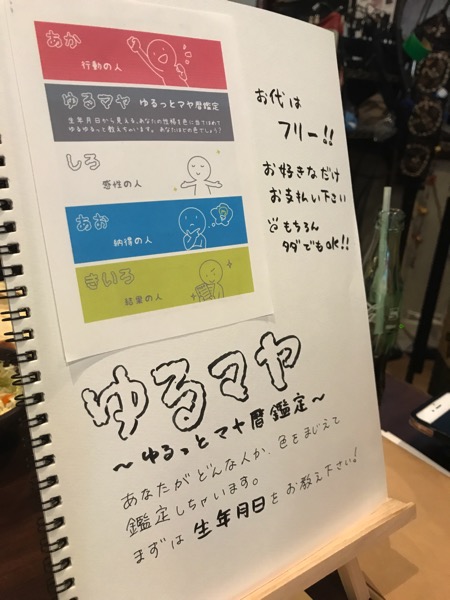 あか
行動の人
ゆるマヤ ゆるっとマヤ暦鑑定
生年月日から見える、あなたの性格を色に当てはめて
ゆるゆるっと教えちゃいます。あなたはどの色でしょう?
しろ
感性の人
あお
納得の人
きいろ
結果の人
お代は
フリー!!
お好きなだけ
お支払い下さい
もちろん
タダでもOK!!
ゆるマヤ
~ゆるっとマヤ暦鑑定~
あなたがどんな人か、色をまじえて
鑑定しちゃいます。
まずは生年月日をお教え下さい!